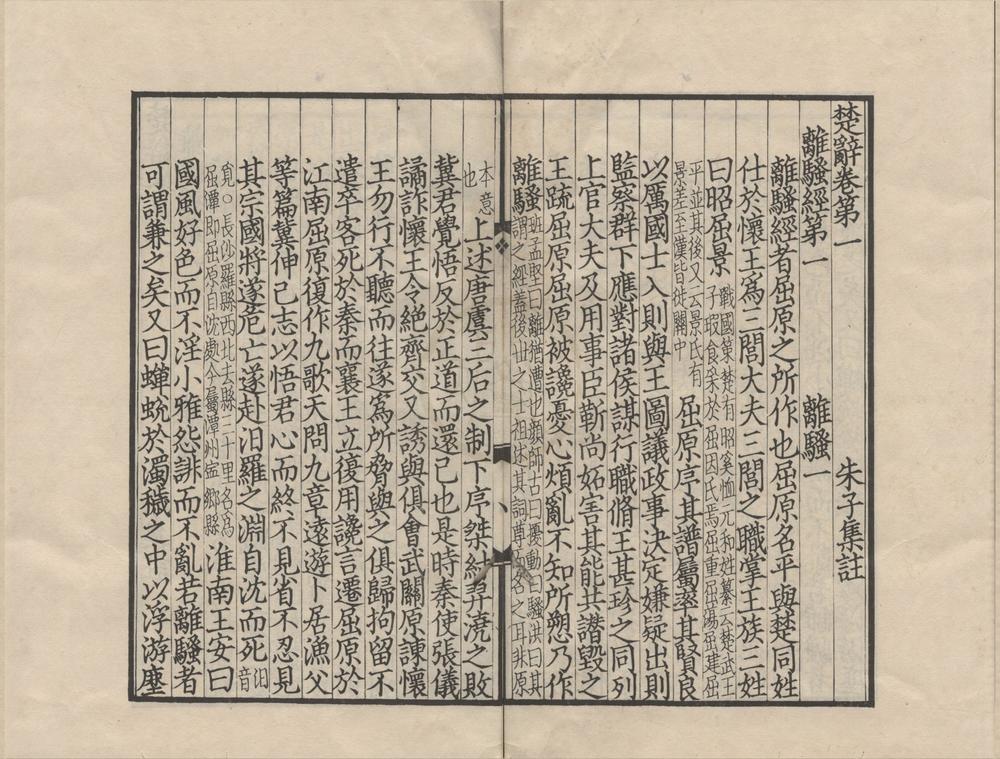 楚辭卷第一　朱子集註
離騷經第一　離騷一
離騷經者屈原之所作也屈原名平與楚同姓
仕於懷王爲三閭大夫三閭之職掌王族三姓
曰昭屈景
戰國策楚有昭奚恤元和姓纂云楚武王
子瑕食采於屈因氏焉屈重屈蕩屈建屈
平並其後又云景氏有
景差至漢皆徙關中
屈原序其譜屬率其賢良
以厲國士入則與王圖議政事決定嫌疑出則
監察群下應對諸侯謀行職脩王甚珍之同列
上官大夫及用事臣靳尚妬害其能共譖毀之
王疏屈原屈原被讒憂心煩亂不知所愬乃作
離騷
班孟堅曰離猶遭也顏師古曰擾動曰騷洪曰其
謂之經蓋後世之士祖述其詞尊而名之耳非原
本意
也
上述唐虞三后之制下序桀紂羿澆之敗
冀君覺悟反於正道而還己也是時秦使張儀
譎詐懷王令絕齊交又誘與俱會武關原諫懷
王勿行不聽而往遂爲所脅與之俱歸拘留不
遣卒客死於秦而襄王立復用讒言遷屈原於
江南屈原復作九歌天問九章遠遊卜居漁父
等篇冀伸己志以悟君心而終不見省不忍見
其宗國將遂危亡遂赴汨羅之淵自沈而死
汨
音
覓○長沙羅縣西北去縣三十里名爲
屈潭即屈原自沈處今屬潭州寧鄉縣
淮南王安曰
國風好色而不淫小雅怨誹而不亂若離騷者
可謂兼之矣又曰蟬蛻於濁穢之中以浮游塵